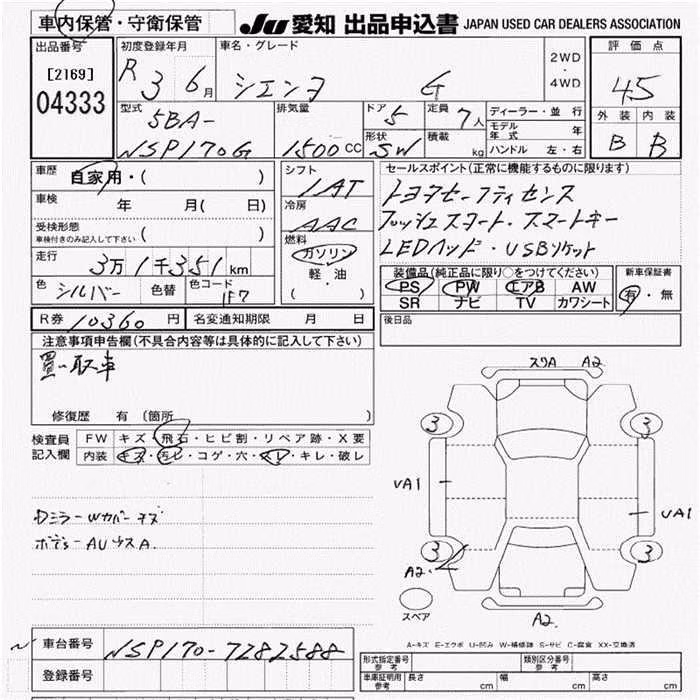 車内保管・守衛保管
JU 愛知 出品申込書 JAPAN USED CAR DEALERS ASSOCIATION
出品番号
[2169]
04333
初度登録年月
R 3 6月
車名・グレード
シエンタ G
2WD
・
4WD
評価点
45
外装 内装
B B
型式
5BA-
NSP170G
排気量
1500 CC
ドア
5
定員
7人
形状
SW
積載
kg
ディーラー・並行
モデル年式 年
ハンドル 左・右
車歴
自家用・( )
車検
年 月( 日)
受検形態
車検付きのみ記入して下さい
( )
走行
3万1千351km
色
シルバー
色替
色コード
1F7
シフト
IAT
冷房
AAC
燃料
ガソリン
軽・油
( )
セールスポイント(正常に機能するものに限ります)
トヨタセーフティセンス
プッシュスタート・スマートキー
LEDヘッド・USBソケット
装備品(純正品に限り○をつけてください)
PS PW エアB AW
SR ナビ TV カワシート
新車保証書
有・無
R券 10360円
名変通知期限 月 日
後日品
注意事項申告欄(不具合内容等は具体的に記入して下さい)
買い取り車
修復歴 有(箇所 )
検査員記入欄
FW キズ・飛石・ヒビ割・リペア跡・X要
内装 キズ・汚レ・コゲ・穴・スレ・キレ・破レ
スリA A2
3 3
UA1
UA1
3 3
A2
スペア
A2
A-キズ E-エクボ U-凹み W-補修跡 S-サビ C-腐食 XX-交換済
車台番号 NSP170-7282588
登録番号
形式指定番号
参考
類別区分番号
参考
車庫証明用
参考
長さ cm
幅 cm
高さ cm